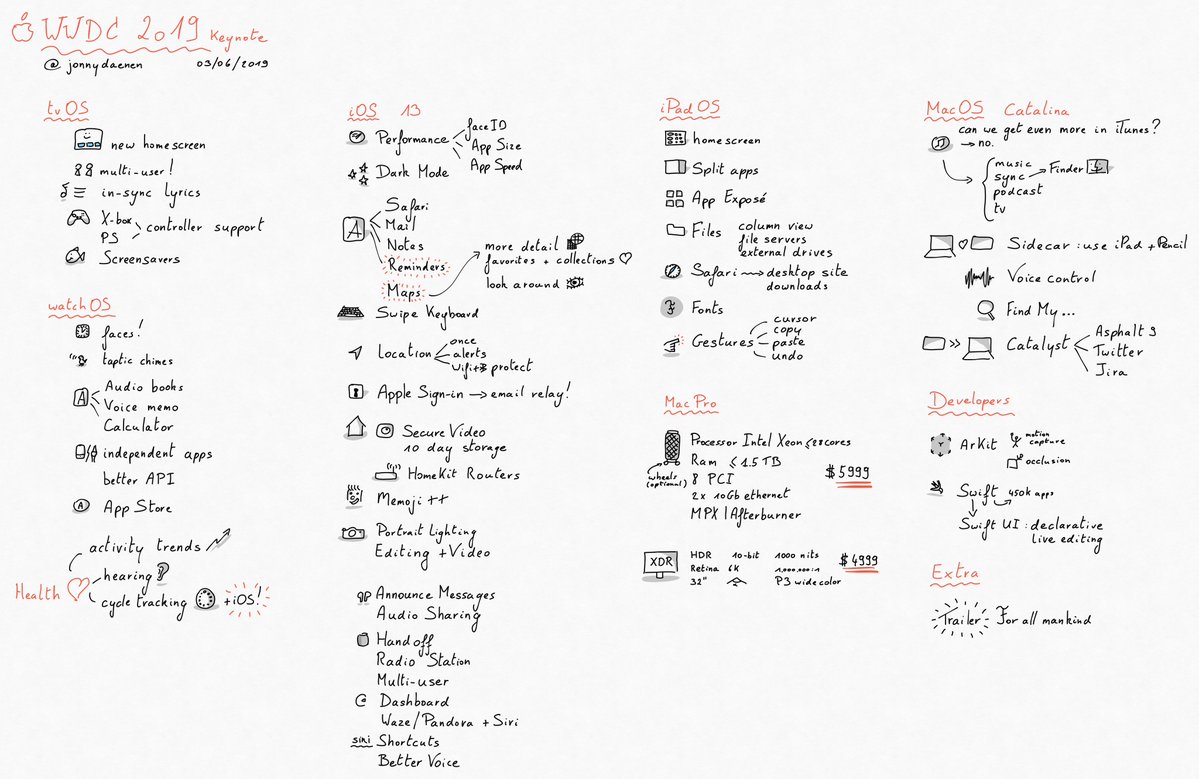 WWDC 2019 Keynote
@jonnydaenen 03/06/2019
tvOS
new homescreen
multi-user!
in-sync lyrics
X-box
PS
controller support
Screensavers
watchOS
faces!
taptic chimes
A
Audio books
Voice memo
Calculator
independent apps
better API
A
App Store
Health
activity trends
hearing
cycle tracking
+iOS!
iOS 13
Performance
faceID
App Size
App Speed
Dark Mode
A
Safari
Mail
Notes
Reminders
Maps
more detail
favorites + collections
look around
Swipe Keyboard
Location
once
alerts
wifi + protect
Apple Sign-in → email relay!
Secure Video
10 day storage
HomeKit Routers
Memoji ++
Portrait Lighting
Editing + Video
Announce Messages
Audio Sharing
Handoff
Radio Station
Multi-user
Dashboard
Waze/Pandora + Siri
siri Shortcuts
Better Voice
iPadOS
homescreen
Split apps
App Exposé
Files
column view
file servers
external drives
Safari
desktop site
downloads
F
Fonts
Gestures
cursor
copy
paste
undo
Mac Pro
wheels
(optional)
Processor Intel Xeon ≤28cores
Ram ≤ 1.5 TB
8 PCI
2x 10Gb ethernet
MPX | Afterburner
$5999
XDR
HDR 10-bit 1000 nits
Retina 6K 1.000.000:1
32" P3 wide color
$4999
MacOS Catalina
can we get even more in iTunes?
→ no.
music
sync → Finder
podcast
tv
Sidecar : use iPad + Pencil
Voice control
Find My ...
>> Catalyst
Asphalt 9
Twitter
Jira
Developers
ArKit
motion
capture
occlusion
Swift 450k apps
Swift UI : declarative
live editing
Extra
Trailer - For all mankind